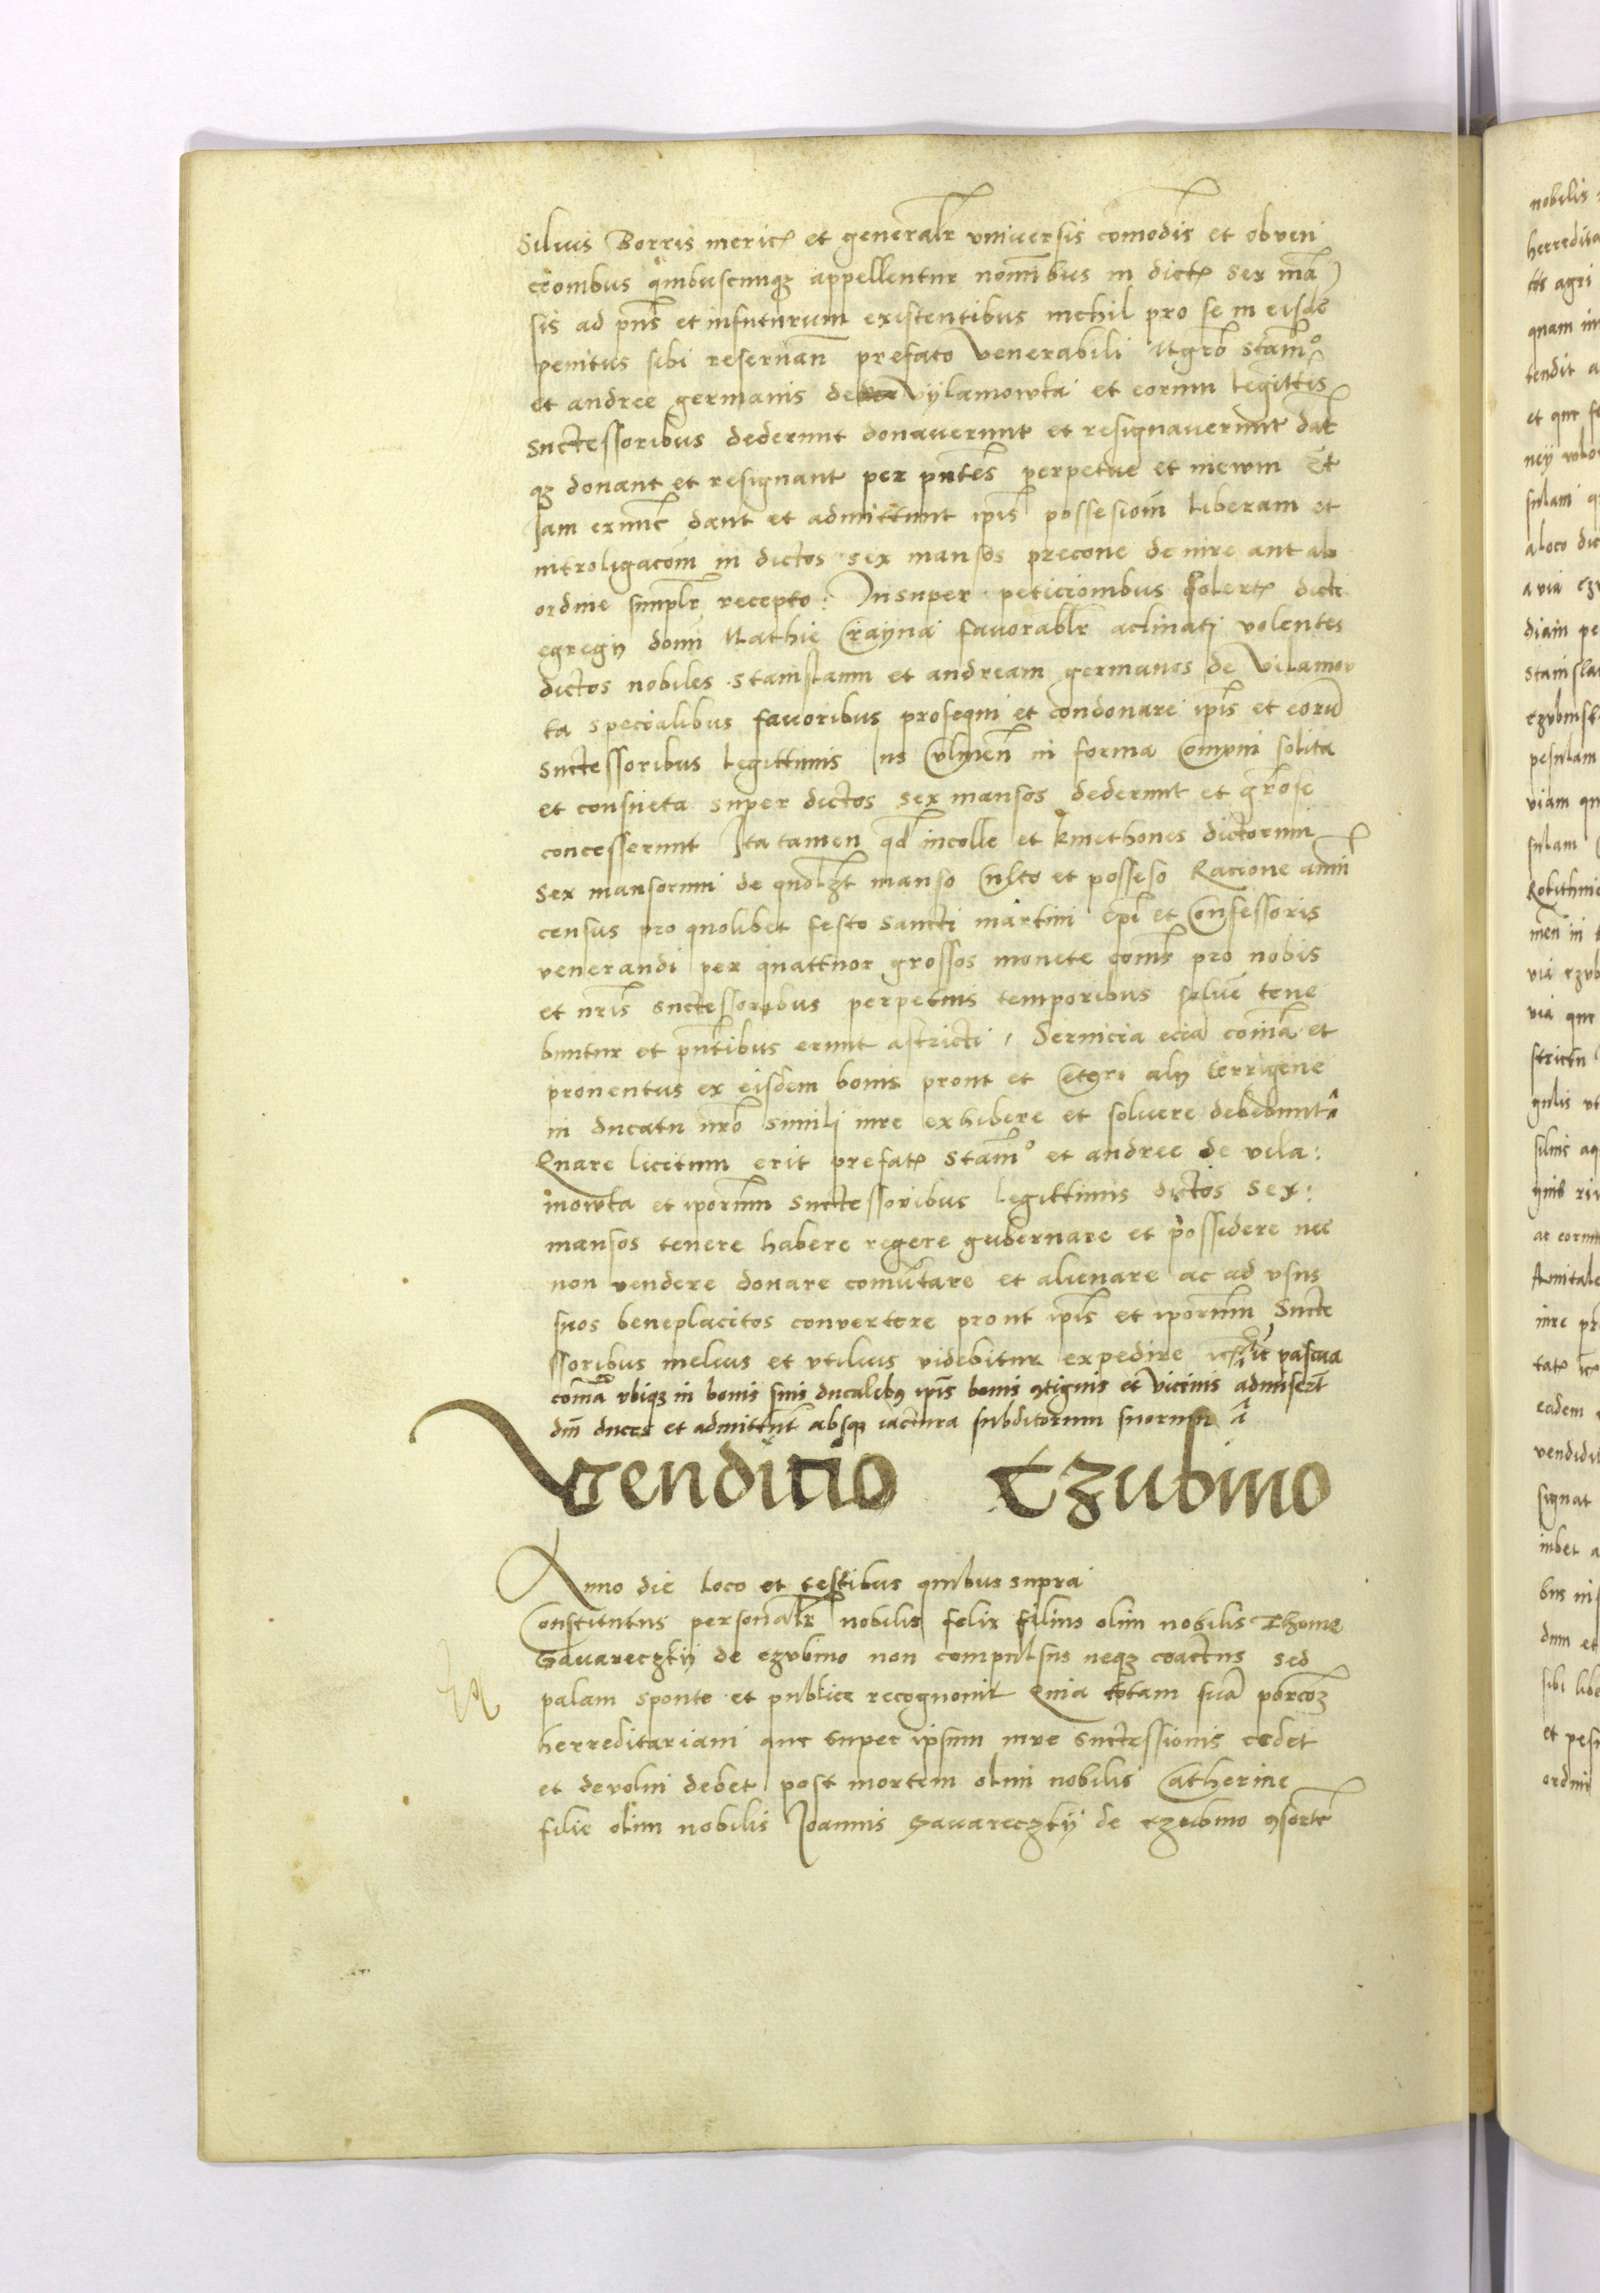 Siluis Borris mericꝭ et generalr̄ vniuersis comodis et obven
cionibus quibuscunqꝫ appellentur nominibus in dictꝭ sex mā
sis ad pn̄s et infuturum existentibus nichil pro se in eisdē
penitus sibi reseruan̄ prefato venerabili Mgrō stam̄o
et andree germanis de Vylamowta et eorum legittīs
Successoribus dederunt donaverunt et resignaverunt dāt
qꝫ donant et resignant per pn̄tes perpetue et in ewm Et
Iam exnūc dant et admittunt ip̄is possesionē liberam et
introligacōm in dictos sex mansos precone de iure ant ab
ordine simplr̄ recepto: Insuper peticionibus solertꝭ dicti
egregij domī Mathie Crayna favorablr̄ aclinati volentes
dictos nobiles stanislaum et andream germanos de Vilamow
ta specialibus favoribus prosequi et condonare ip̄is et eorū
Successoribus legittimis Ius Culmen̄ in forma Comuni solita
et consueta super dictos sex mansos dederunt et grōse
concesserunt Ita tamen qd̄ incolle et kmethones dictorum
Sex mansorum de quolꝫt manso Culto et posseso Racione ann̄
census pro quolibet festo sancti martini Ep̄i et Confessoris
venerandi per quattuor grossos monete com̄s pro nobis
et nr̄is successoribus perpetuis temporibus solvē tene
buntur et pn̄tibus erunt astricti, Seruicia eciā comīa et
prouentus ex eisdem bonis prout et Ceteri alij terrigene
in ducatu nrō simili iure exhibere et soluere debebunt
Quare licitum erit prefatꝭ stam̄o et andree de vila:
mowta et ip̄orum successoribus legittimis dictos sex:
mansos tenere habere regere gubernare et possidere nec
non vendere donare comutare et alienare ac ad vsus
suos beneplacitos convertere prout ip̄is et ip̄orum Succe
ssoribus melius et vtilius videbitur expedire pascua
comīa vbiqꝫ in bonis suis ducalibꝰ ip̄is bonis ꝯtiguis et vicinis admisert̄
dn̄i duces et admittunt absqꝫ iactura subditorum suorum
Venditio Czubino
Anno die loco et testibus quibus supra
Constitutus personalr̄ nobilis felix filius olim nobilis Thome
Gauareczkij de czvbino non compulsus neqꝫ coactus sed
palam sponte et publice recognouit Quia totam suā porcōꝫ
herreditariam que super ipsum iure successionis cedet
et devolui debet post mortem olim nobilis Catherine
filie olim nobilis Joannis Gauareczkij de czubino ꝯsortꝭ